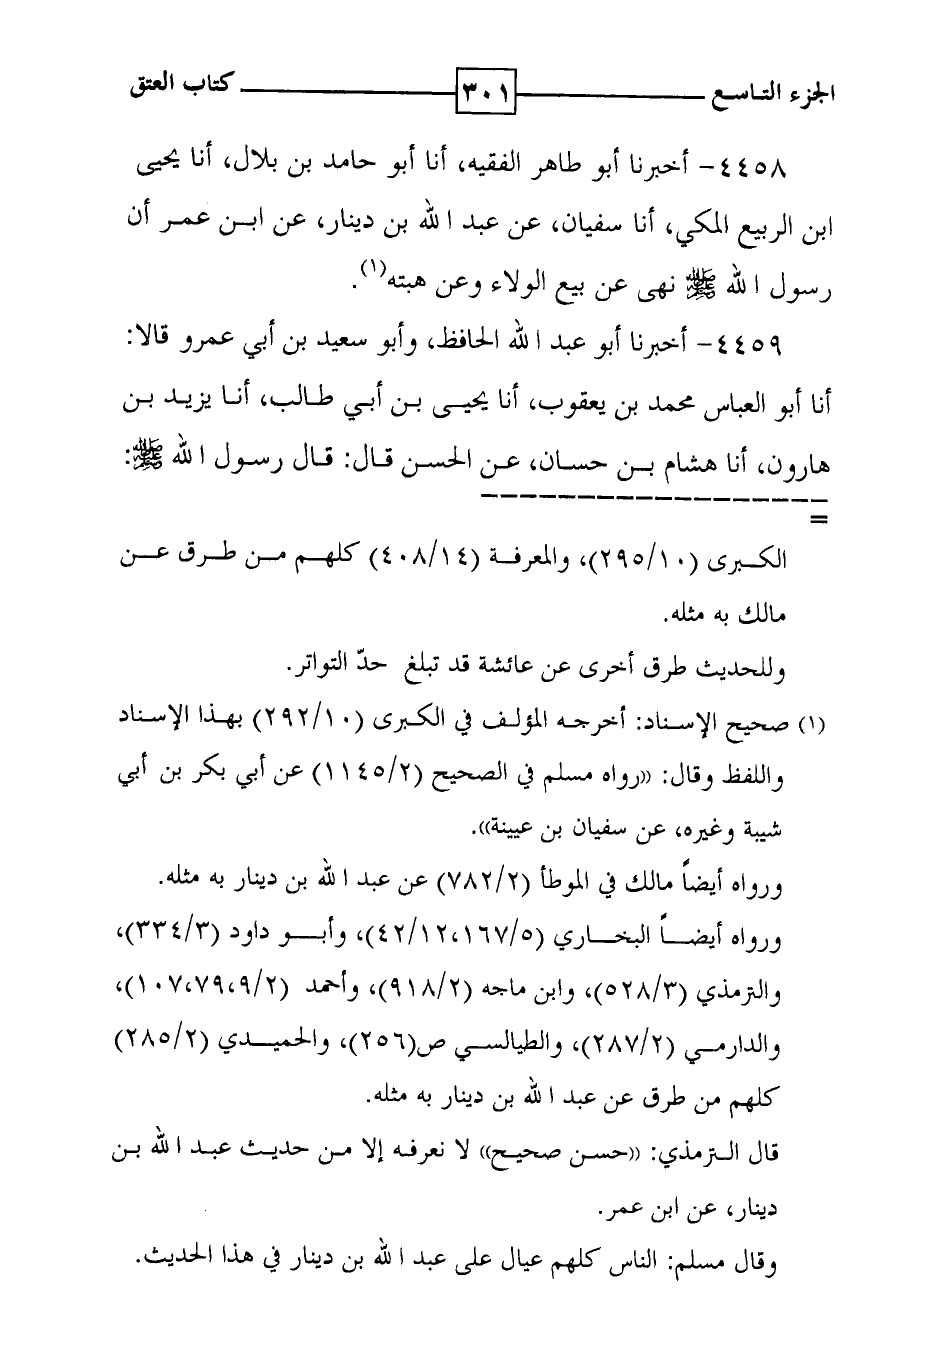 الجزء التاسع ٣٠١ كتاب العتق
٤٤٥٨- أخبرنا أبو طاهر الفقيه، أنا أبو حامد بن بلال، أنا يحيى
ابن الربيع المكي، أنا سفيان، عن عبد الله بن دينار، عن ابن عمر أن
رسول الله ﷺ نهى عن بيع الولاء وعن هبته(١).
٤٤٥٩- أخبرنا أبو عبد الله الحافظ، وأبو سعيد بن أبي عمرو قالا:
أنا أبو العباس محمد بن يعقوب، أنا يحيى بن أبي طالب، أنا يزيد بن
هارون، أنا هشام بن حسان، عن الحسن قال: قال رسول الله ﷺ:
=
الكبرى (٢٩٥/١٠)، والمعرفة (٤٠٨/١٤) كلهم من طرق عن
مالك به مثله.
وللحديث طرق أخرى عن عائشة قد تبلغ حدّ التواتر.
(١) صحيح الإسناد: أخرجه المؤلف في الكبرى (٢٩٢/١٠) بهذا الإسناد
واللفظ وقال: ((رواه مسلم في الصحيح (١١٤٥/٢) عن أبي بكر بن أبي
شيبة وغيره، عن سفيان بن عيينة)).
ورواه أيضاً مالك في الموطأ (٧٨٢/٢) عن عبد الله بن دينار به مثله.
ورواه أيضاً البخاري (١٦٧/٥، ٤٢/١٢)، وأبو داود (٣٣٤/٣)،
والترمذي (٥٢٨/٣)، وابن ماجه (٩١٨/٢)، وأحمد (٩/٢، ٧٩، ١٠٧)،
والدارمي (٢٨٧/٢)، والطيالسي ص(٢٥٦)، والحميدي (٢٨٥/٢)
كلهم من طرق عن عبد الله بن دينار به مثله.
قال الترمذي: ((حسن صحيح)) لا نعرفه إلا من حديث عبد الله بن
دينار، عن ابن عمر.
وقال مسلم: الناس كلهم عيال على عبد الله بن دينار في هذا الحديث.